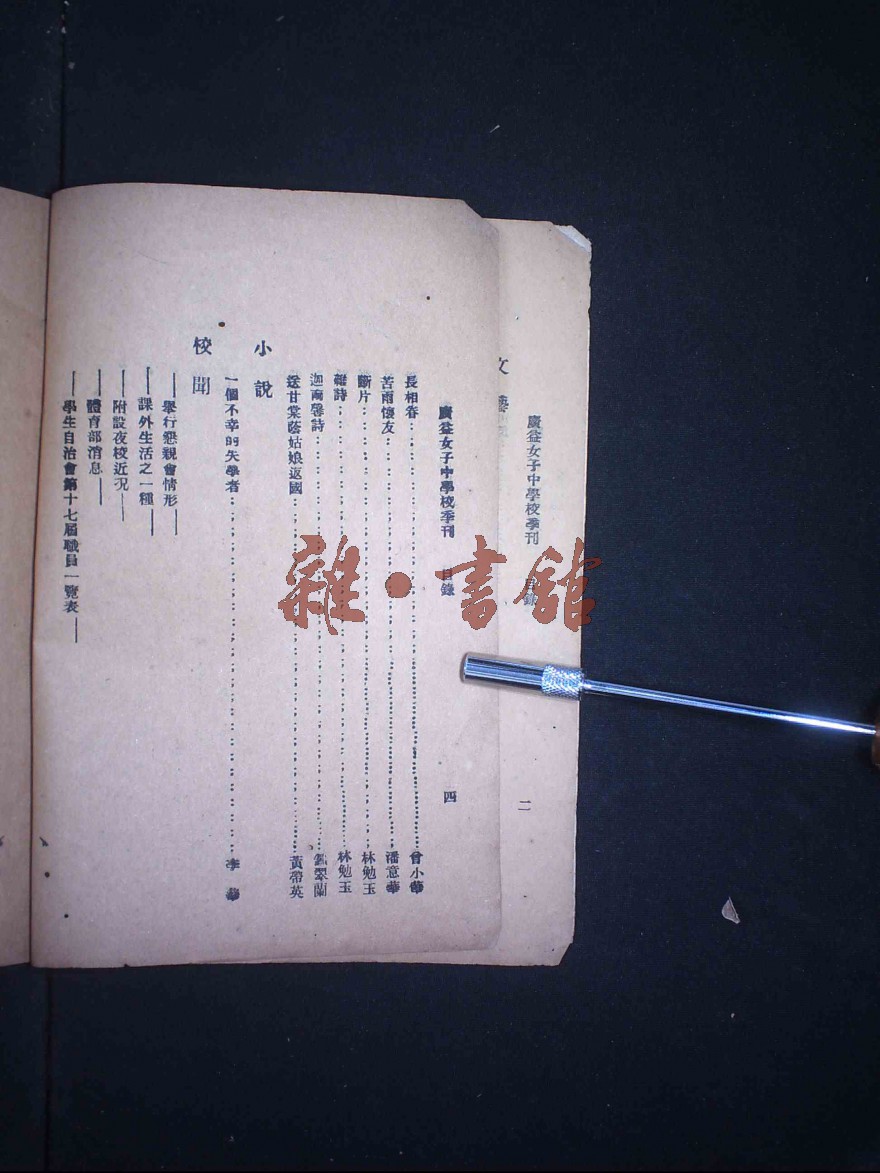 廣益女子中學校季刊 目錄 二
文
廣益女子中學校季刊 目錄 四
長相眷 曾小華
苦雨懷友 潘意華
斷片 林勉玉
雜詩 林勉玉
迦南馨詩 翠蘭
送甘棠蔭姑娘返國 黃帶英
小說
一個不幸的失學者 李華
校聞
——舉行懇親會情形——
——課外生活之一種——
——附設夜校近況——
——體育部消息——
——學生自治會第十七屆職員一覽表——
雜·書館